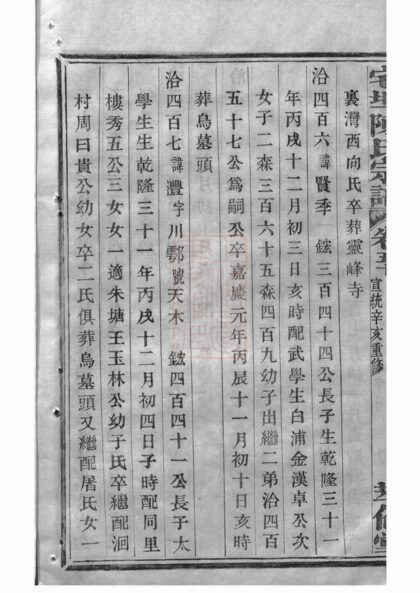 陳氏宗譜 卷五 宣統辛亥重修
裏灣西向氏卒葬靈峰寺
洽四百六 諱賢季 鋐三百四十四公長子生乾隆三十一
年丙戌十二月初三日亥時配武學生白浦金漢卓公次
女子二森三百六十五森四百九幼子出繼二弟洽四百
五十七公爲嗣公卒嘉慶元年丙辰十一月初十日亥時
葬烏墓頭
洽四百七 諱灃字川鄠號天木 鋐四百四十一公長子太
學生生乾隆三十一年丙戌十二月初四日子時配同里
樓秀五公三女女一適朱塘王玉林公幼子氏卒繼配洄
村周曰貴公幼女卒二氏俱葬烏墓頭又繼配屠氏女一